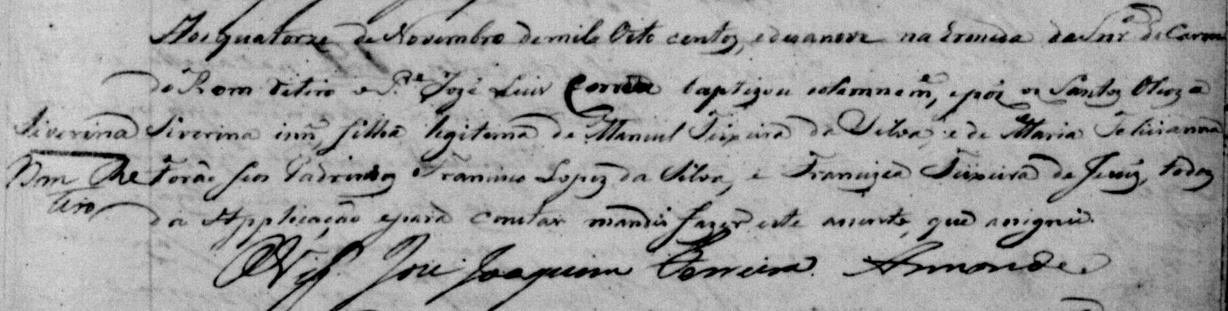 Aos quatorze de Novembro de mil e Oito centos, e dezanove na Ermida da Snr.ª do Carmo
do Bom Retiro o P.e Jozé Luis Corrêa baptizou solemnem.e, e poz os Santos Oleos a
Siverina Siverina inn, filha legitima de Manuel Teixeira da Silva, e de Maria Felicianna
Bom Re Forão seos Padrinhos Francisco Lopes da Silva, e Francisca Teixeira de Jesus, todos
tiro da Applicação e para constar mandei fazer este assento, que assignei
O Vig.º José Joaquim Ferreira Armonde